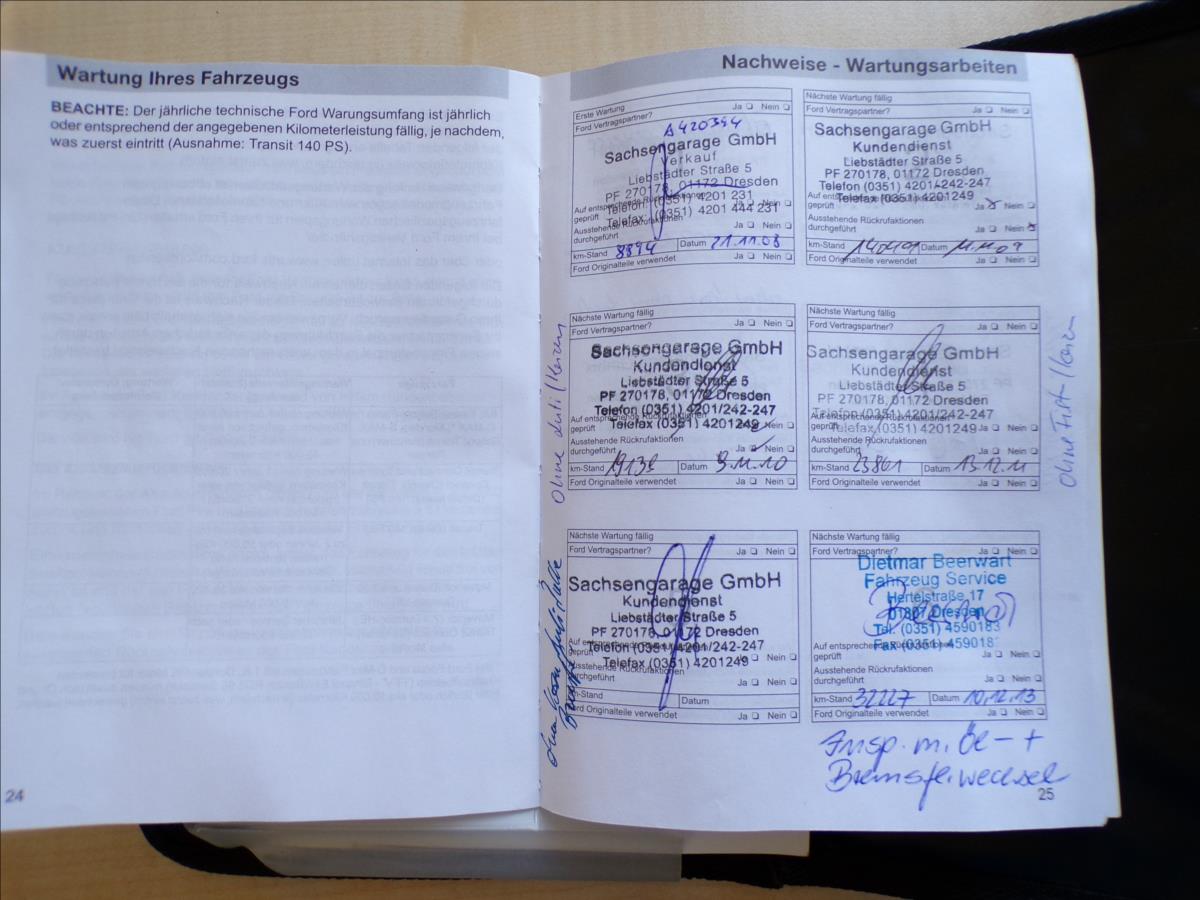 Wartung Ihres Fahrzeugs
BEACHTE: Der jährliche technische Ford Warungsumfang ist jährlich
oder entsprechend der angegebenen Kilometerleistung fällig, je nachdem,
was zuerst eintritt (Ausnahme: Transit 140 PS).
24
Nachweise - Wartungsarbeiten
Erste Wartung
Ford Vertragspartner? Ja Nein
A420394
Sachsengarage GmbH
Verkauf
Liebstädter Straße 5
PF 270178, 01172 Dresden
Telefon (0351) 4201 231
Telefax (0351) 4201 444 231
Auf entsprechende Rückrufaktionen
geprüft Ja Nein
Ausstehende Rückrufaktionen
durchgeführt Ja Nein
km-Stand 8894 Datum 21.11.08
Ford Originalteile verwendet Ja Nein
Nächste Wartung fällig
Ford Vertragspartner? Ja Nein
Sachsengarage GmbH
Kundendienst
Liebstädter Straße 5
PF 270178, 01172 Dresden
Telefon (0351) 4201/242-247
Telefax (0351) 4201249
Auf entsprechende Rückrufaktionen
geprüft Ja Nein
Ausstehende Rückrufaktionen
durchgeführt Ja Nein
km-Stand Datum
Ford Originalteile verwendet Ja Nein
Nächste Wartung fällig
Ford Vertragspartner? Ja Nein
Sachsengarage GmbH
Kundendienst
Liebstädter Straße 5
PF 270178, 01172 Dresden
Telefon (0351) 4201/242-247
Telefax (0351) 4201249
Auf entsprechende Rückrufaktionen
geprüft Ja Nein
Ausstehende Rückrufaktionen
durchgeführt Ja Nein
km-Stand 19139 Datum 9.11.10
Ford Originalteile verwendet Ja Nein
Ohne
Nächste Wartung fällig
Ford Vertragspartner? Ja Nein
Sachsengarage GmbH
Kundendienst
Liebstädter Straße 5
PF 270178, 01172 Dresden
Telefon (0351) 4201/242-247
Telefax (0351) 4201249
Auf entsprechende Rückrufaktionen
geprüft Ja Nein
Ausstehende Rückrufaktionen
durchgeführt Ja Nein
km-Stand 23861 Datum 13.12.11
Ford Originalteile verwendet Ja Nein
Ohne
Nächste Wartung fällig
Ford Vertragspartner? Ja Nein
Sachsengarage GmbH
Kundendienst
Liebstädter Straße 5
PF 270178, 01172 Dresden
Telefon (0351) 4201/242-247
Telefax (0351) 4201249
Auf entsprechende Rückrufaktionen
geprüft Ja Nein
Ausstehende Rückrufaktionen
durchgeführt Ja Nein
km-Stand Datum
Ford Originalteile verwendet Ja Nein
Nächste Wartung fällig
Ford Vertragspartner? Ja Nein
Dietmar Beerwart
Fahrzeug Service
Hertelstraße 17
01307 Dresden
Tel. (0351) 4590183
Fax (0351) 459018
Auf entsprechende Rückrufaktionen
geprüft Ja Nein
Ausstehende Rückrufaktionen
durchgeführt Ja Nein
km-Stand 32227 Datum 10.12.13
Ford Originalteile verwendet Ja Nein
Insp. m. Öl- +
Bremsfl.wechsel
25